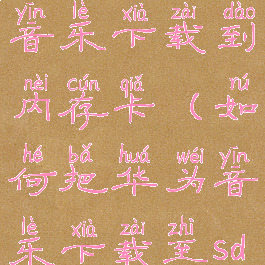 yīn lè xià zài dào
音乐下载到
nèi cún qiǎ nú
内存卡（如
hé bǎ huá wéi yīn
何把华为音
lè xià zài zhì
乐下载至Sd